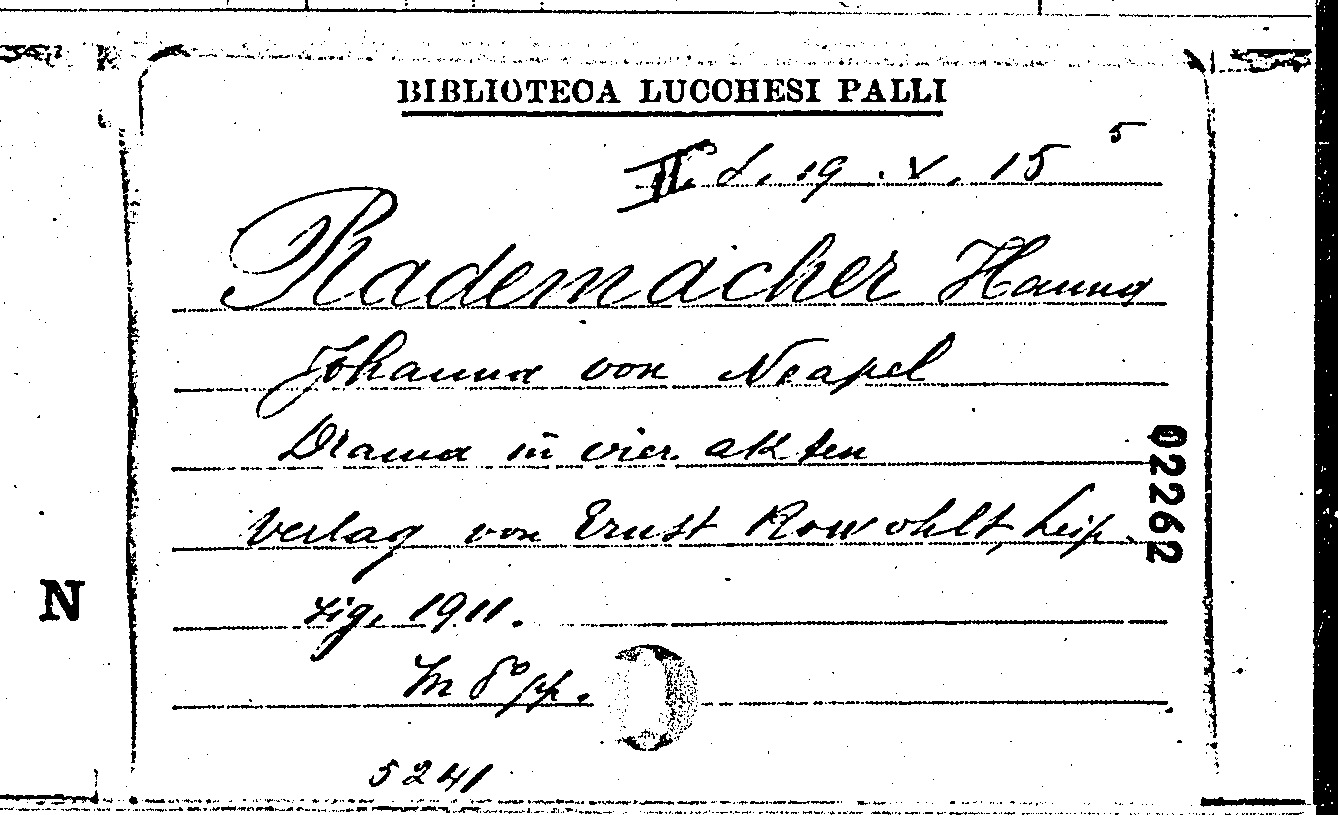 BIBLIOTECA LUCCHESI PALLI
II. d. 19 . V. 15 5
Rademacher Hanna
Johanna von Neapel
Drama in vier akten
Verlag von Ernst Rowohlt, Leip-
zig, 1911.
In 8° pp.
5241
02262
N